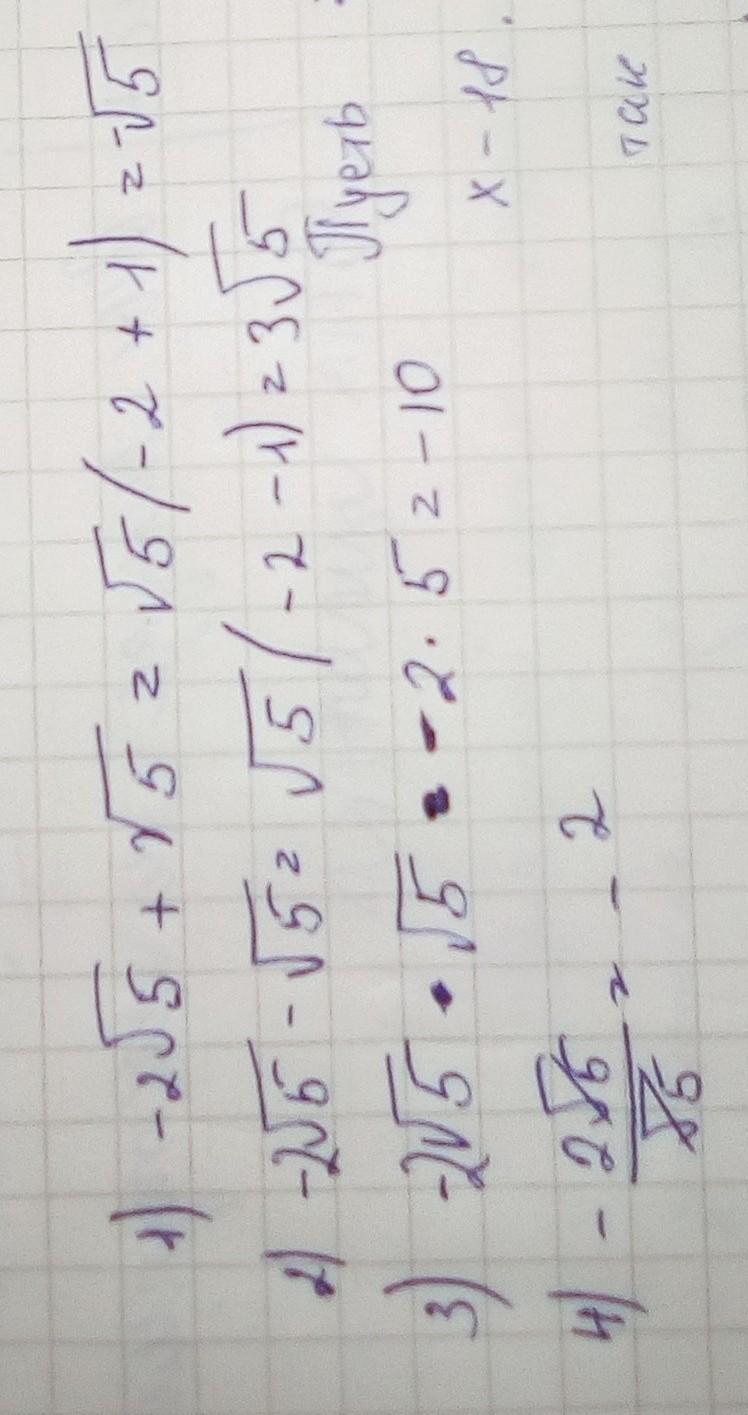 1) -2√5 + √5 = √5(-2 + 1) = -√5
2) -2√5 - √5 = √5(-2 - 1) = 3√5
3) -2√5 · √5 = -2 · 5 = -10
4) - 2√5/√5 = - 2
Пусть
х - 18.
так